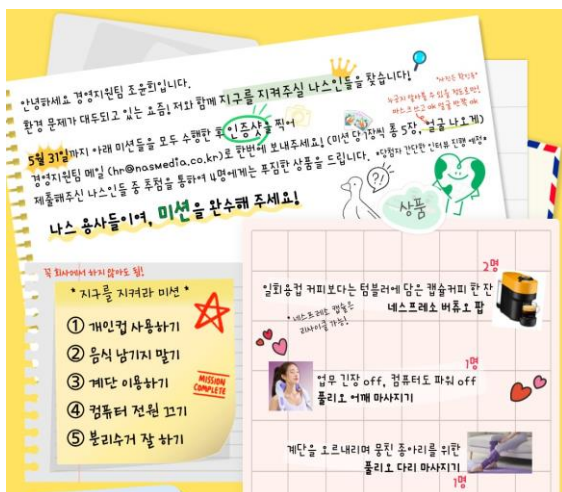 안녕하세요 경영지원팀 조윤희입니다.
환경 문제가 대두되고 있는 요즘! 저와 함께 지구를 지켜주실 나스인들을 찾습니다!
5월 31일까지 아래 미션들을 모두 수행한 후 인증샷을 찍어
경영지원팀 메일 (hr@nasmedia.co.kr)로 한번에 보내주세요! (미션 당 1장씩 총 5장, 얼굴 나오게)
제출해주신 나스인들 중 추첨을 통하여 4명에게는 푸짐한 상품을 드립니다. *당첨자 간단한 인터뷰 진행 예정*
나스 용사들이여, 미션을 완수해 주세요!
상품
꼭 회사에서 하지 않아도 됨!
* 지구를 지켜라 미션 *
① 개인컵 사용하기
② 음식 남기지 말기
③ 계단 이용하기
④ 컴퓨터 전원 끄기
⑤ 분리수거 잘 하기
MISSION
COMPLETE
2명
일회용컵 커피보다는 텀블러에 담은 캡슐커피 한 잔
네스프레소 버츄오 팝
*네스프레소 캡슐은
리사이클 가능!
1명
업무 긴장 off, 컴퓨터도 파워 off
풀리오 어깨 마사지기
계단을 오르내리며 뭉친 종아리를 위한
풀리오 다리 마사지기
1명